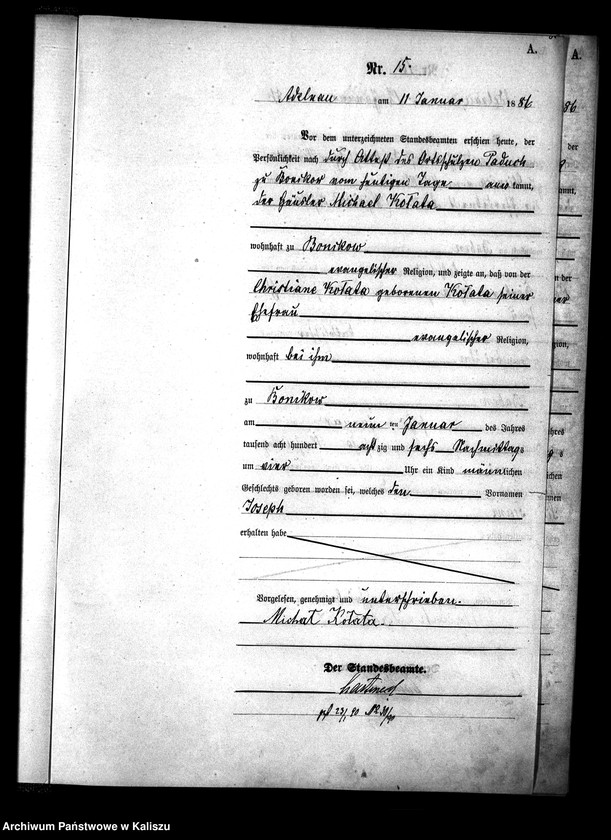 A.
Nr. 15.
Adelnau am 11 Januar 1886
Vor dem unterzeichneten Standesbeamten erschien heute, der
Persönlichkeit nach durch Attest des Ortsschulzen Paduch
zu Bonikow vom heutigen Tage anerkannt,
der Häusler Michael Kołata
wohnhaft zu Bonikow
evangelischer Religion, und zeigte an, daß von der
Christiane Kołata geborenen Kołata seiner
Ehefrau
evangelischer Religion,
wohnhaft bei ihm
zu Bonikow
am neun ten Januar des Jahres
tausend acht hundert acht zig und sechs Nachmittags
um vier Uhr ein Kind männlichen
Geschlechts geboren worden sei, welches den Vornamen
Joseph
erhalten habe
Vorgelesen, genehmigt und unterschrieben.
Michał Kołata
Der Standesbeamte.
A.
86
Archiwum Państwowe w Kaliszu